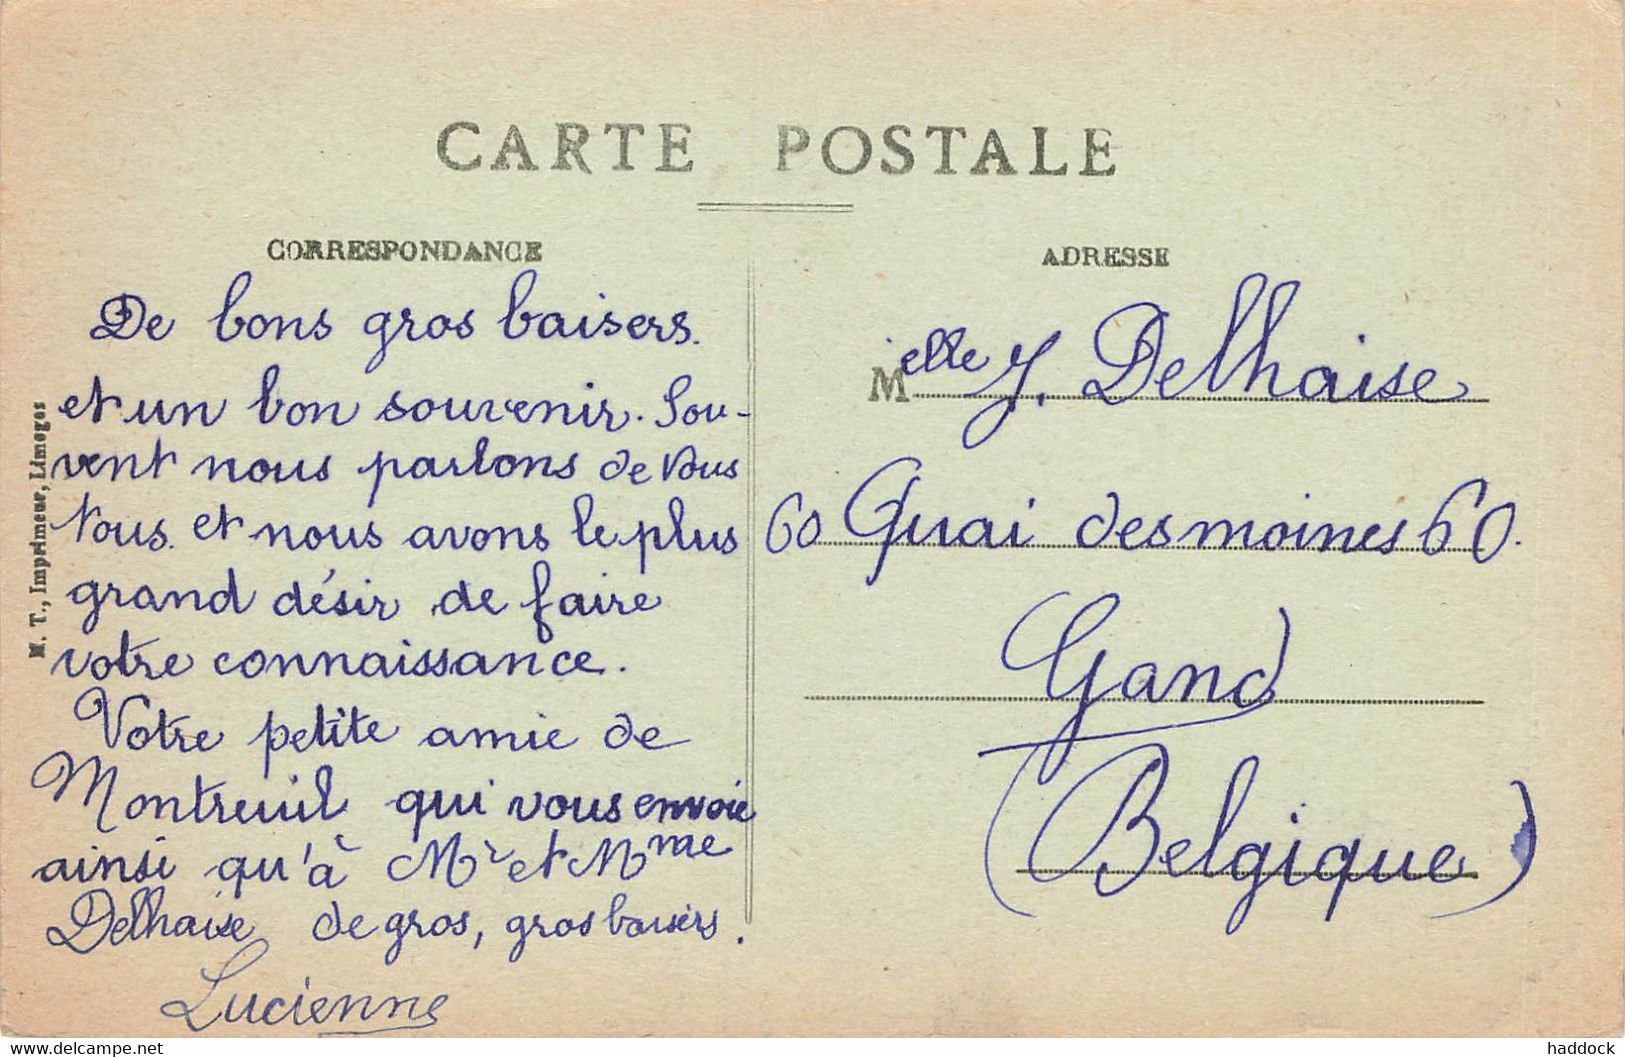 CARTE POSTALE
CORRESPONDANCE
De bons gros baisers.
et un bon souvenir. Sou-
vent nous parlons de vous
tous. et nous avons le plus
grand désir de faire
votre connaissance.
Votre petite amie de
Montreuil qui vous envoie
ainsi qu'à Mr et Mme
Delhaise de gros, gros baisers.
Lucienne
M. T., Imprimeur, Limoges
ADRESSE
Melle J. Delhaise
60 Quai des moines 60.
Gand
(Belgique)
delcampe.net
haddock